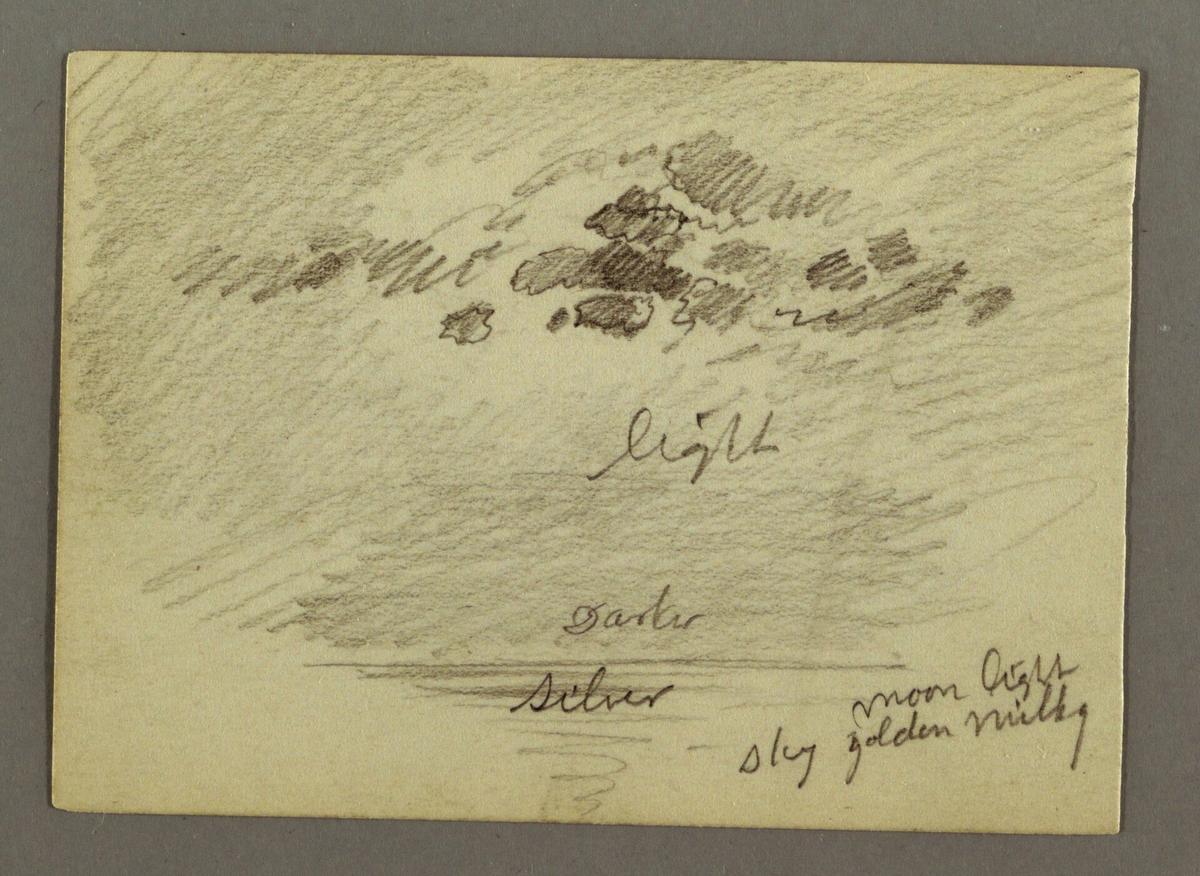 light
Darker
silver
moon light
sky golden milky